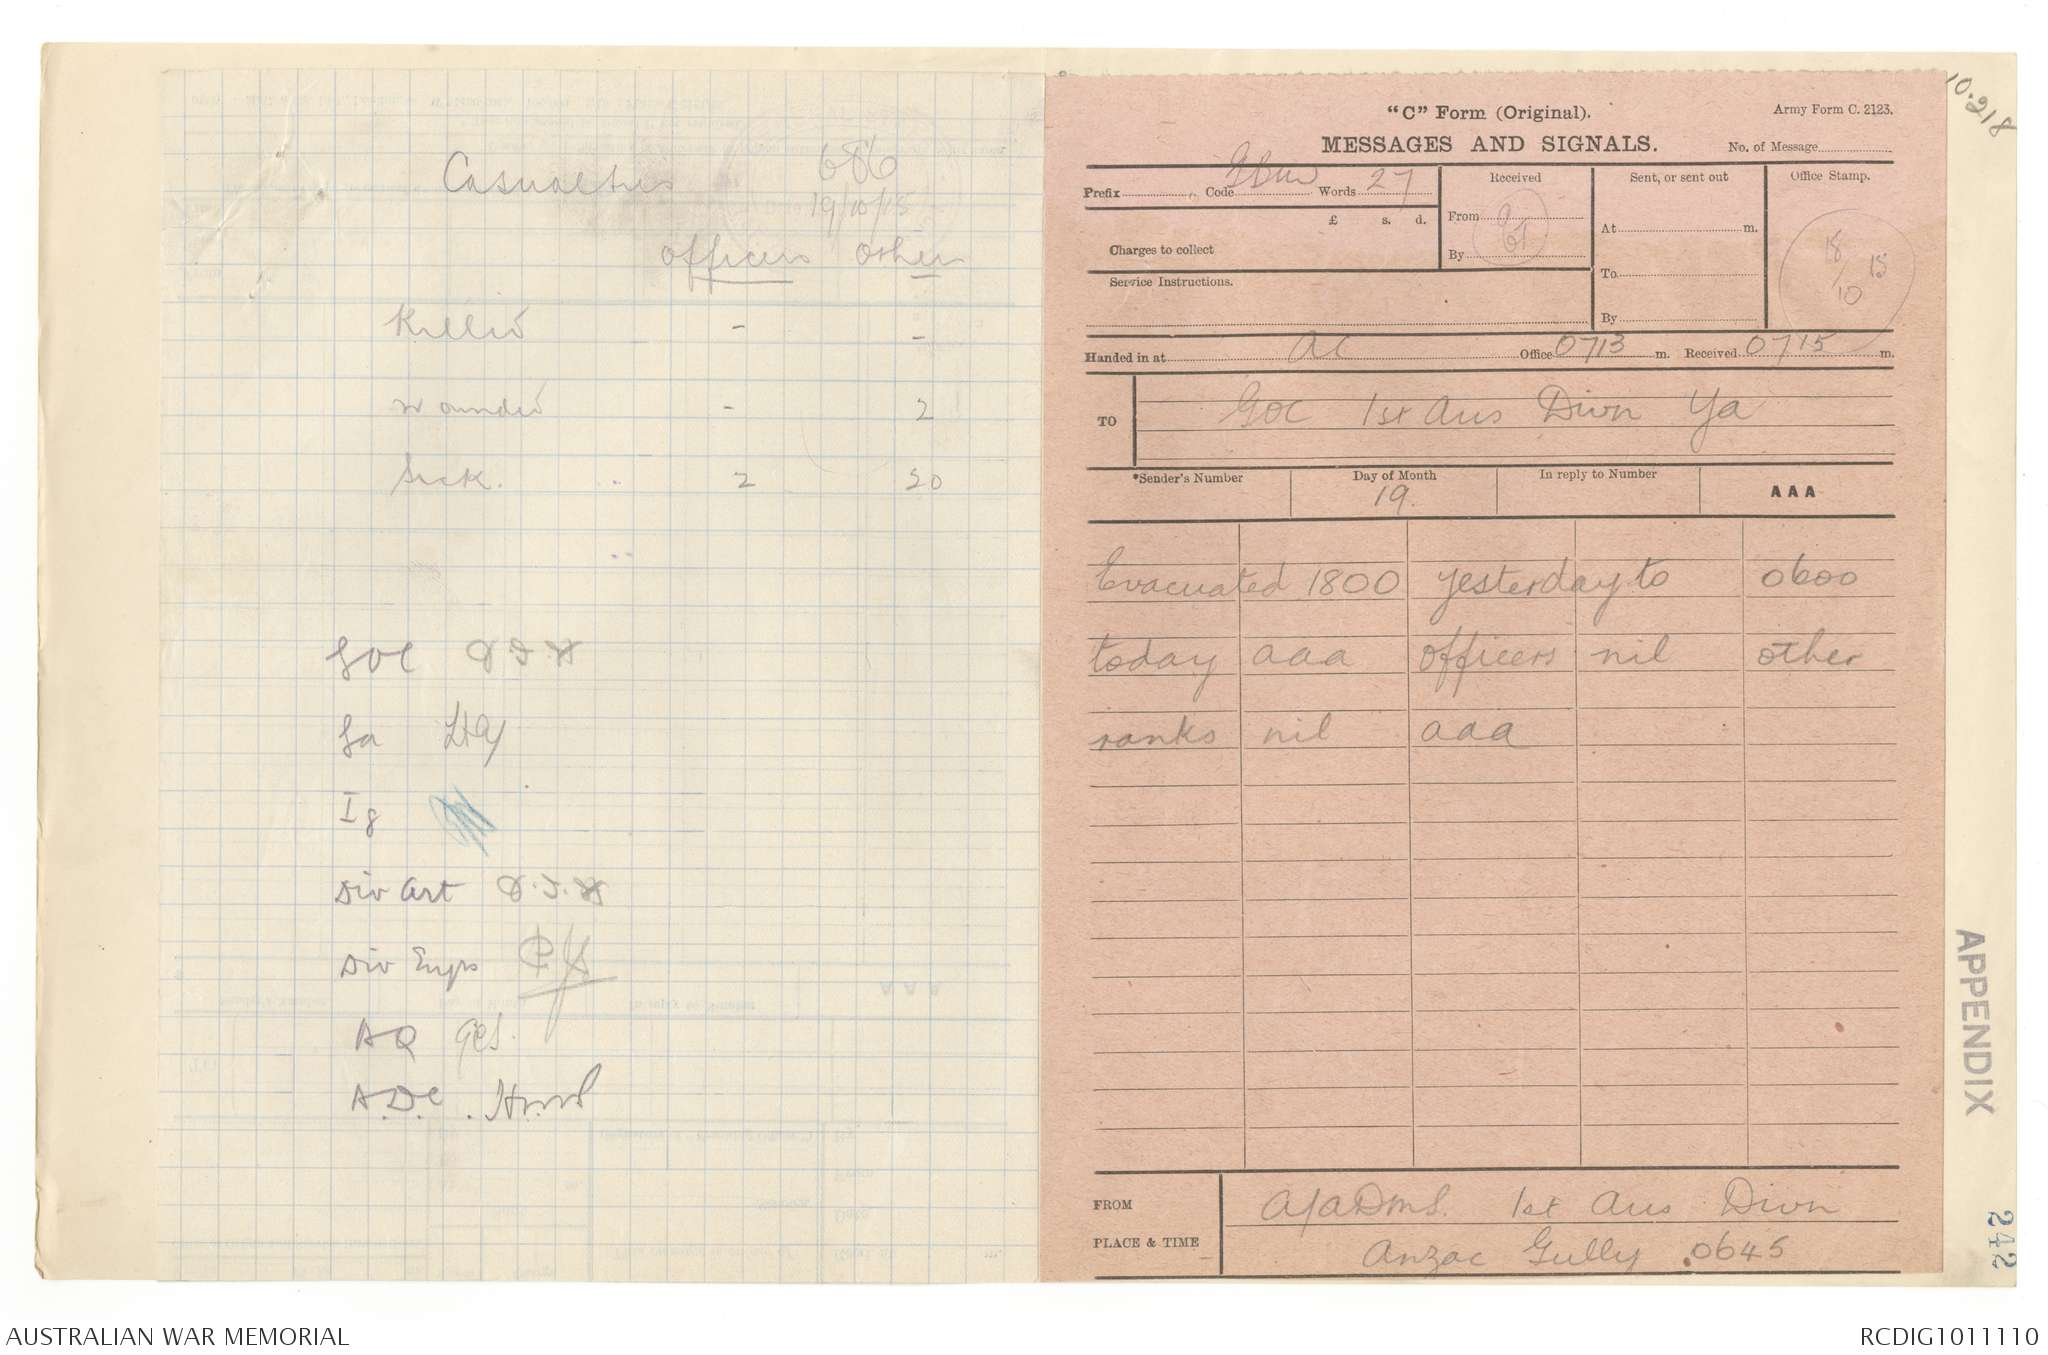 Casualties 686
19/10/15
Officers Others
Killed - -
Wounded - 2
Sick. 2 50
GOC
Ga
Ig
Div Art
Div Engrs
AQ
A.D.C.
10.218
"C" Form (Original). Army Form C. 2123.
MESSAGES AND SIGNALS. No. of Message
Prefix Code Words 27
£ s. d.
Charges to collect
Service Instructions.
Received
From
By
Sent, or sent out
At m.
To
By
Office Stamp.
18/10 15
Handed in at AC Office 0713 m. Received 0715 m.
TO GOC 1st Aus Divn Ya
*Sender's Number Day of Month In reply to Number AAA
19.
Evacuated 1800 yesterday to 0600
today aaa officers nil other
ranks nil aaa
FROM A/ADMS. 1st Aus Divn
PLACE & TIME Anzac Gully 0645
APPENDIX
242
AUSTRALIAN WAR MEMORIAL RCDIG1011110